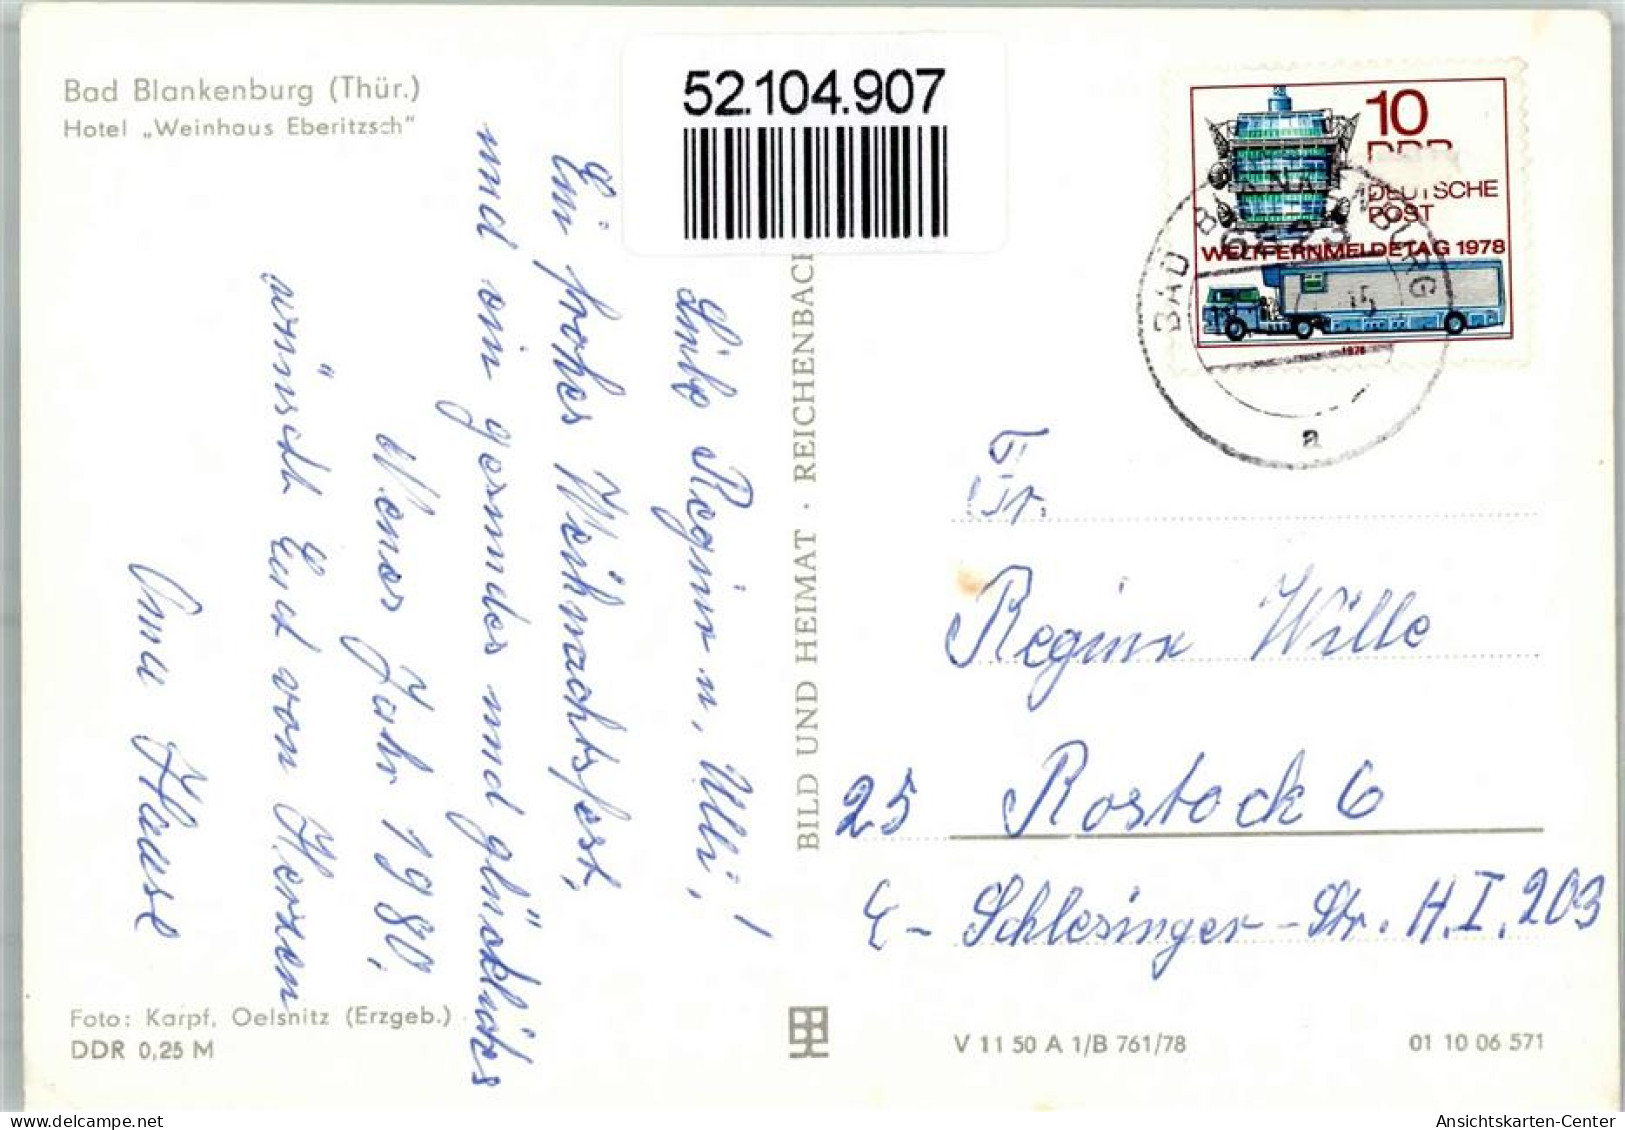 Bad Blankenburg (Thür.)
Hotel „Weinhaus Eberitzsch"
52.104.907
Liebe Regina u. Ulli!
Ein frohes Weihnachtsfest,
und ein gesundes und glückliches
Neues Jahr 1980,
wünscht Euch von Herzen
Anna Haase
Foto: Karpf, Oelsnitz (Erzgeb.)
DDR 0,25 M
BILD UND HEIMAT · REICHENBACH
10
DDR
DEUTSCHE
POST
WELTFERNMELDETAG 1978
1978
BAD BLANKENBURG
a
Fr.
Regina Wille
25 Rostock 6
E-Schlesinger-Str. H.I.203
V 11 50 A 1/B 761/78
01 10 06 571
Ansichtskarten-Center